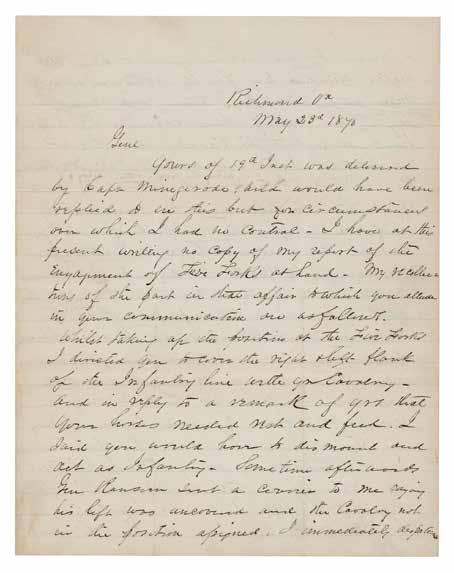 Richmond Va
May 23d 1870
Genl
Yours of 19th Inst was delivered
by Capt Minigerode, and would have been
replied to in this but for circumstances
over which I had no control - I have at this
present writing no copy of my report of the
engagement of Five Forks at hand - My recollec-
tions of the part in that affair to which you allude
in your communication are as follows.
Whilst taking up the position at the Five Forks
I directed you to cover the right & left flank
of the Infantry line with yr Cavalry -
And in reply to a remark of yrs that
your horses needed rest and feed. I
said you would have to dismount and
act as Infantry - Some time afterwards
Gen Ransom sent a courier to me saying
his left was uncovered and the Cavalry not
in the position assigned. I immediately